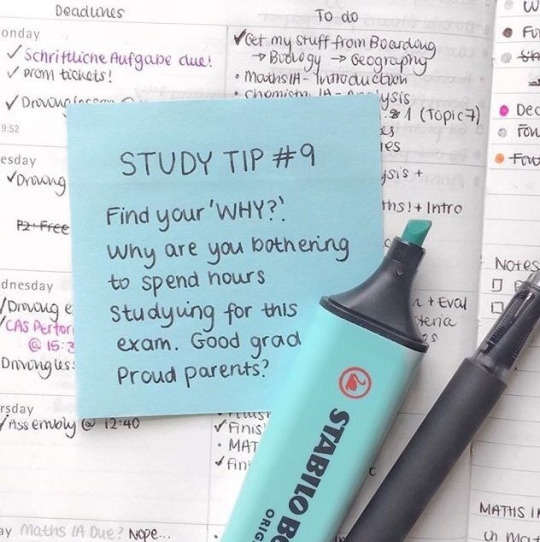 Deadlines
To do
onday
✓ Schriftliche Aufgabe due!
✓ prom tickets!
✓ Driving lesson
9.52
✓ Get my stuff from Boarding
→ Biology → Geography
• Maths IA - Introduction
• Chemistry IA - Analysis
1 (Topic 7)
esday
✓ Driving
P2 Free
ysis +
ths! + Intro
dnesday
Driving e
✓ CAS Perfor
@ 15:3
Driving les
+ Eval
teria
rsday
✓ Assembly @ 12:40
✓ Finis
• MAT
✓ Fin
ay
Maths IA Due? Nope...
STUDY TIP #9
Find your 'WHY?'.
Why are you bothering
to spend hours
studying for this
exam. Good grad
Proud parents?
STABILO BO
ORIG
Dec
Notes
MATHS I